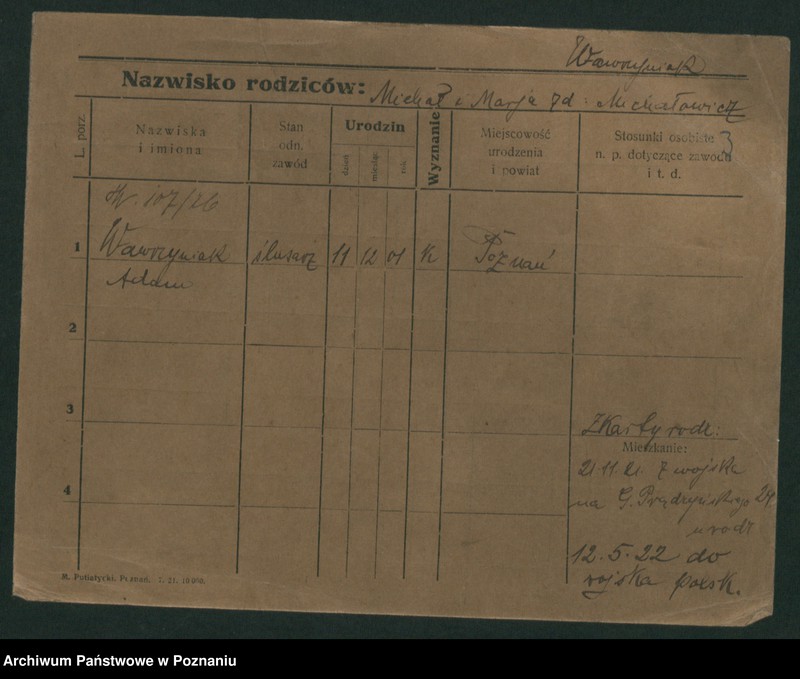 Wawrzyniak
Nazwisko rodziców: Michał i Marja zd: Michałowicz
L. porz.
Nazwiska
i imiona
Stan
odn.
zawód
Urodzin
dzień
miesiąc
rok
Wyznanie
Miejscowość
urodzenia
i powiat
Stosunki osobiste
n. p. dotyczące zawodu
i t. d.
3
107/26
1 Wawrzyniak ślusarz 11 12 01 k Poznań
Adam
2
3
Z Karty rodz:
Mieszkanie:
21.11.21. z wojska
4
na G. Prądzyńskiego 24
u rodz
12.5.22 do
wojska polsk.
M. Putiatycki, Poznań. 7. 21. 10 000.
Archiwum Państwowe w Poznaniu